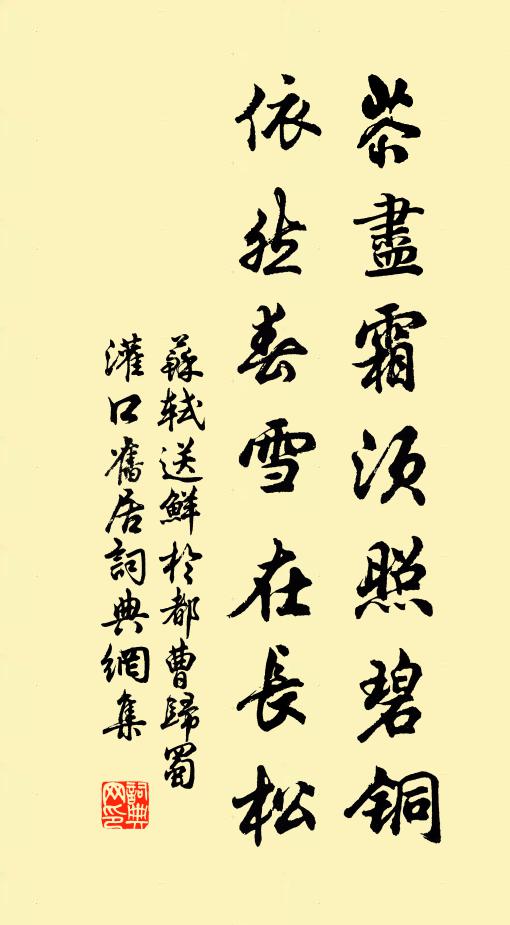 茶盡霜須照碧铜
依然春雪在長松
蘇軾送鮮於都曹歸蜀
灌口舊居詞典網集
詞典
网印